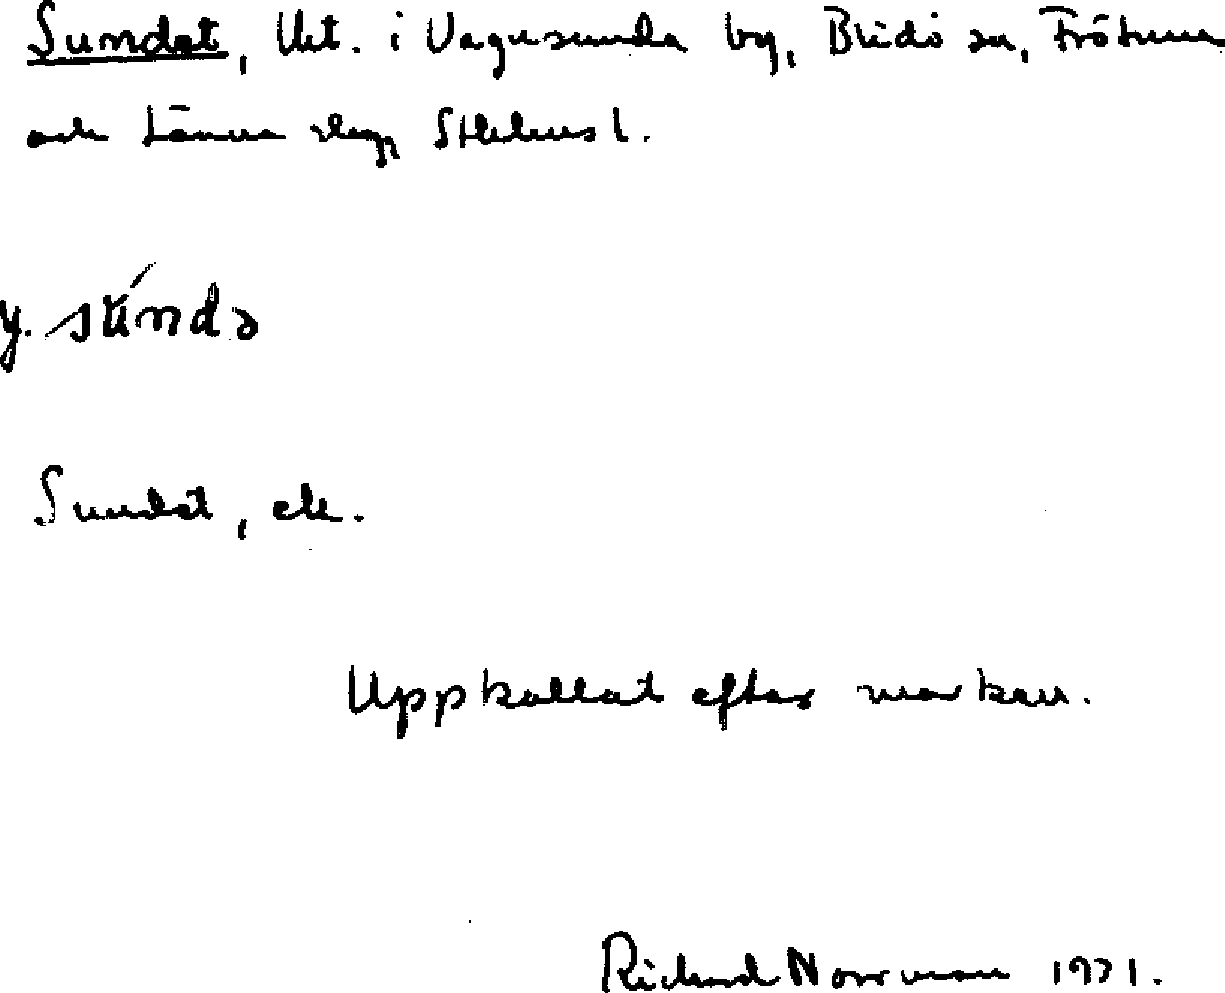 Sundet, lht. i Vagnsunda by, Blidö sn, Frötuna
och Länna slag, Sthlms l.
y. súndə
Sundet, ek.
Uppkallat efter marken.
Richard Norrman 1971.